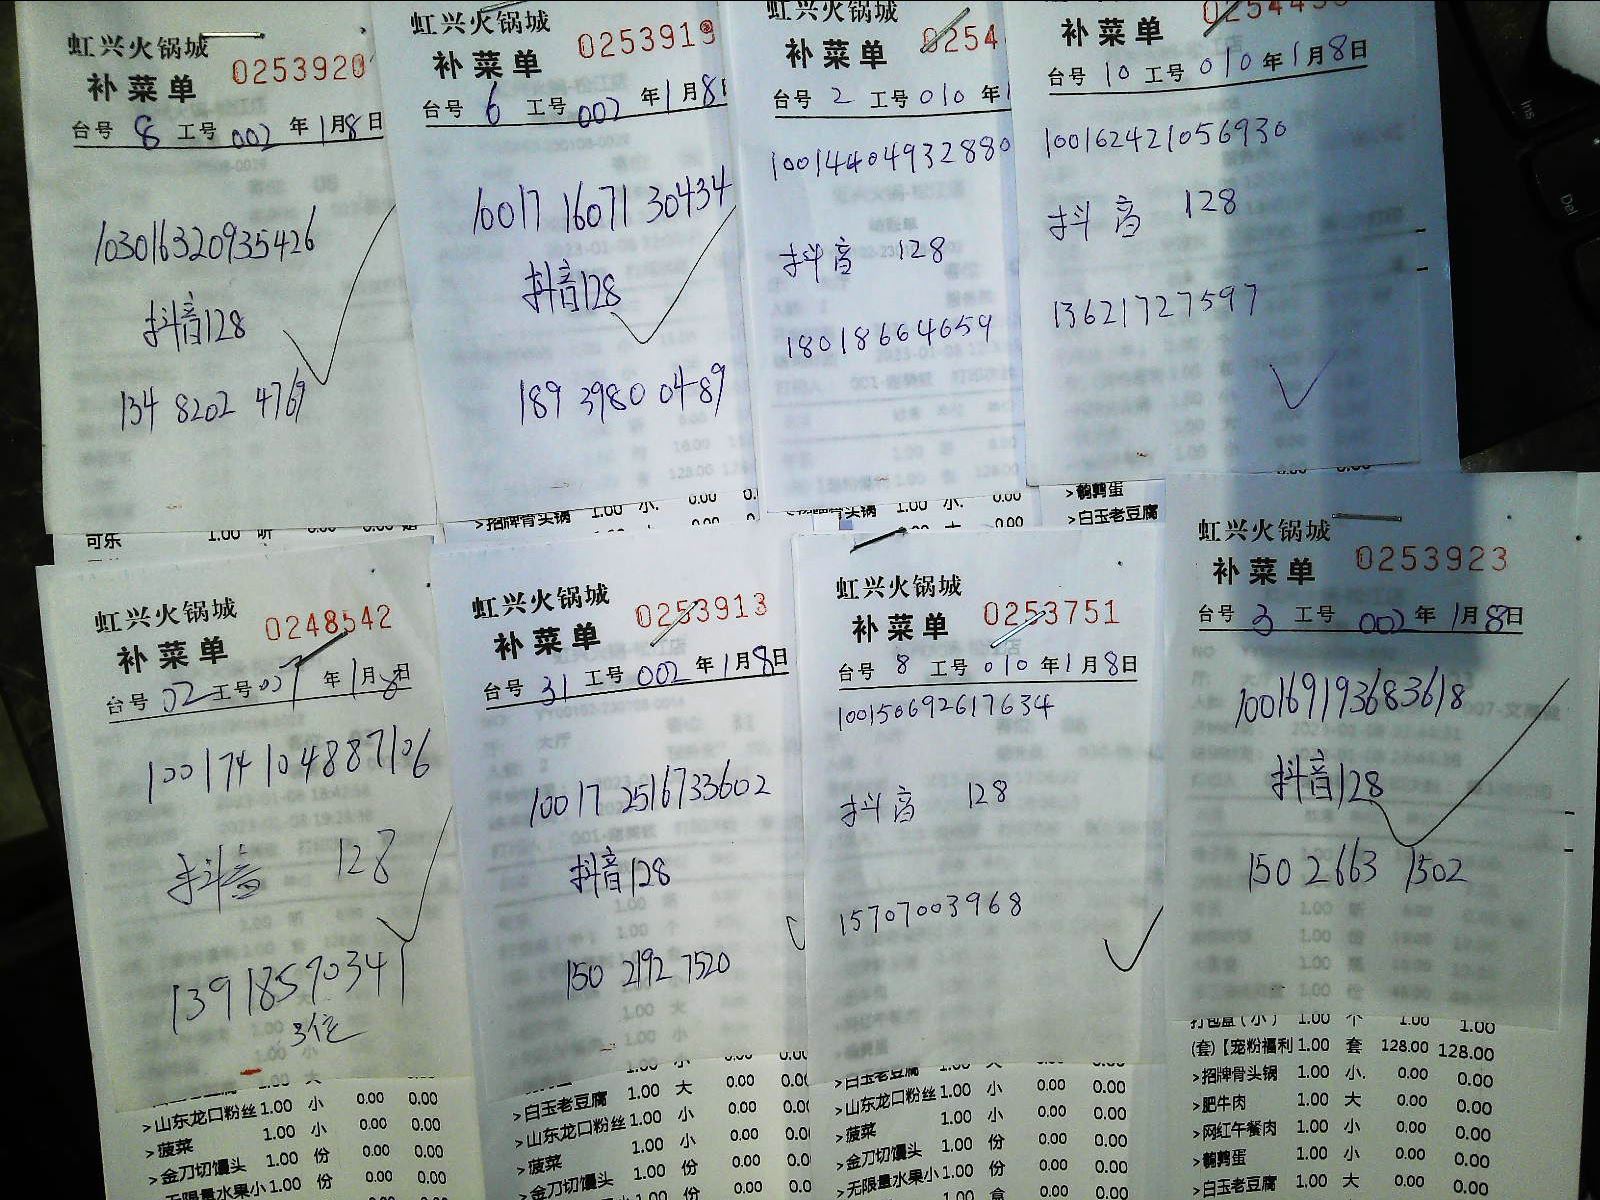 虹兴火锅城
补菜单 0253920
台号 8 工号 002 年 1月8日
103016320935426
抖音128
134 8202 4769
虹兴火锅城
补菜单 025391
台号 6 工号 002 年 1月8
10017 16071 30434
抖音128
189 3980 0489
虹兴火锅城
补菜单 0254
台号 2 工号 010 年
10014404932880
抖音 128
18018664659
补菜单
台号 10 工号 010 年 1月8日
100162421056930
抖音 128
13621727597
可乐 1.00 听
>招牌骨头锅 1.00 小. 0.00
>招牌骨头锅 1.00 小. 0.00
>鹌鹑蛋
>白玉老豆腐
虹兴火锅城
补菜单 0248542
台号 02 工号 007 年 1月8日
100174104887106
抖音 128
13918590341
3位
>山东龙口粉丝 1.00 小 0.00 0.00
>菠菜 1.00 小 0.00 0.00
>金刀切馒头 1.00 份 0.00 0.00
>无限量水果小 1.00 份 0.00 0.00
虹兴火锅城
补菜单 0253913
台号 31 工号 002 年 1月8日
10017 2516733602
抖音128
150 2192 7520
>白玉老豆腐 1.00 大 0.00
>山东龙口粉丝 1.00 小 0.00
>菠菜 1.00 小 0.00
>金刀切馒头 1.00 份 0.00
虹兴火锅城
补菜单 0253751
台号 8 工号 010 年 1月8日
100150692617634
抖音 128
15707003968
>白玉老豆腐 1.00 大 0.00 0.00
>山东龙口粉丝 1.00 小 0.00 0.00
>菠菜 1.00 小 0.00 0.00
>金刀切馒头 1.00 份 0.00 0.00
>无限量水果小 1.00 份 0.00 0.00
虹兴火锅城
补菜单 0253923
台号 3 工号 002 年 1月8日
100169193683618
抖音128
150 2663 1502
打包盒(小) 1.00 个 1.00 1.00
(套)【宠粉福利 1.00 套 128.00 128.00
>招牌骨头锅 1.00 小. 0.00 0.00
>肥牛肉 1.00 大 0.00 0.00
>网红午餐肉 1.00 小 0.00 0.00
>鹌鹑蛋 1.00 小 0.00 0.00
>白玉老豆腐 1.00 大 0.00 0.00
Ins
Del